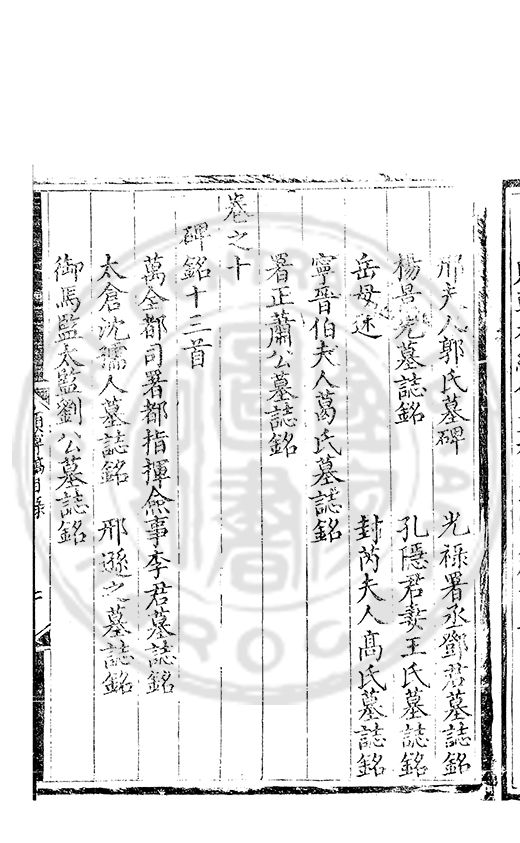 邢夫人郭氏墓碑 光祿署丞鄧君墓誌銘
楊景 墓誌銘 孔隱君妻王氏墓誌銘
岳母述 封芮夫人高氏墓誌銘
寧晉伯夫人葛氏墓誌銘
署正蕭公墓誌銘
卷之十
碑銘十三首
萬全都司署都指揮僉事李君墓誌銘
太倉沈孺人墓誌銘 邢遜之墓誌銘
御馬監太監劉公墓誌銘
目錄